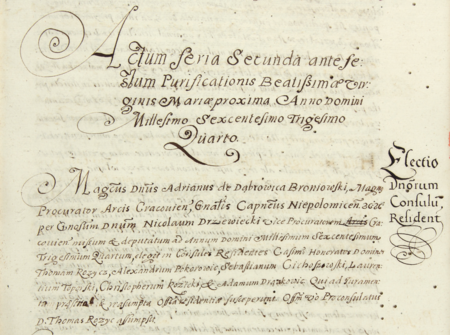 Actum feria Secunda ante fe-
stum Purificationis Beatissimæ Vir-
ginis Mariæ proxima Anno Domini
Millesimo Sexcentesimo Trigesimo
Quarto.
Electio
Dnorum
Consulu
Resident
Magcus Dnus Adrianus de Dąbrowica Broniowski,
Procurator Arcis Cracovien, Gnalis Capneus Niepolomicen
per Ginosum Dnum Nicolaum Drzewiecki Vice Procuratorem Cra
covien missum et deputatum ad Annum Domini Millesimum Sexcentesimum
Trigesimum Quartum, elegit in Consules Residentes Domino
Thomam Rozyc, Alexandrum Sebastianum Cichoszowski, Lauren
tium Topolski, Christopherum et Adamum Qui ad
et reasumpta susceperunt. Proconsulatus
D. Thomas Rozyc assumpsit.